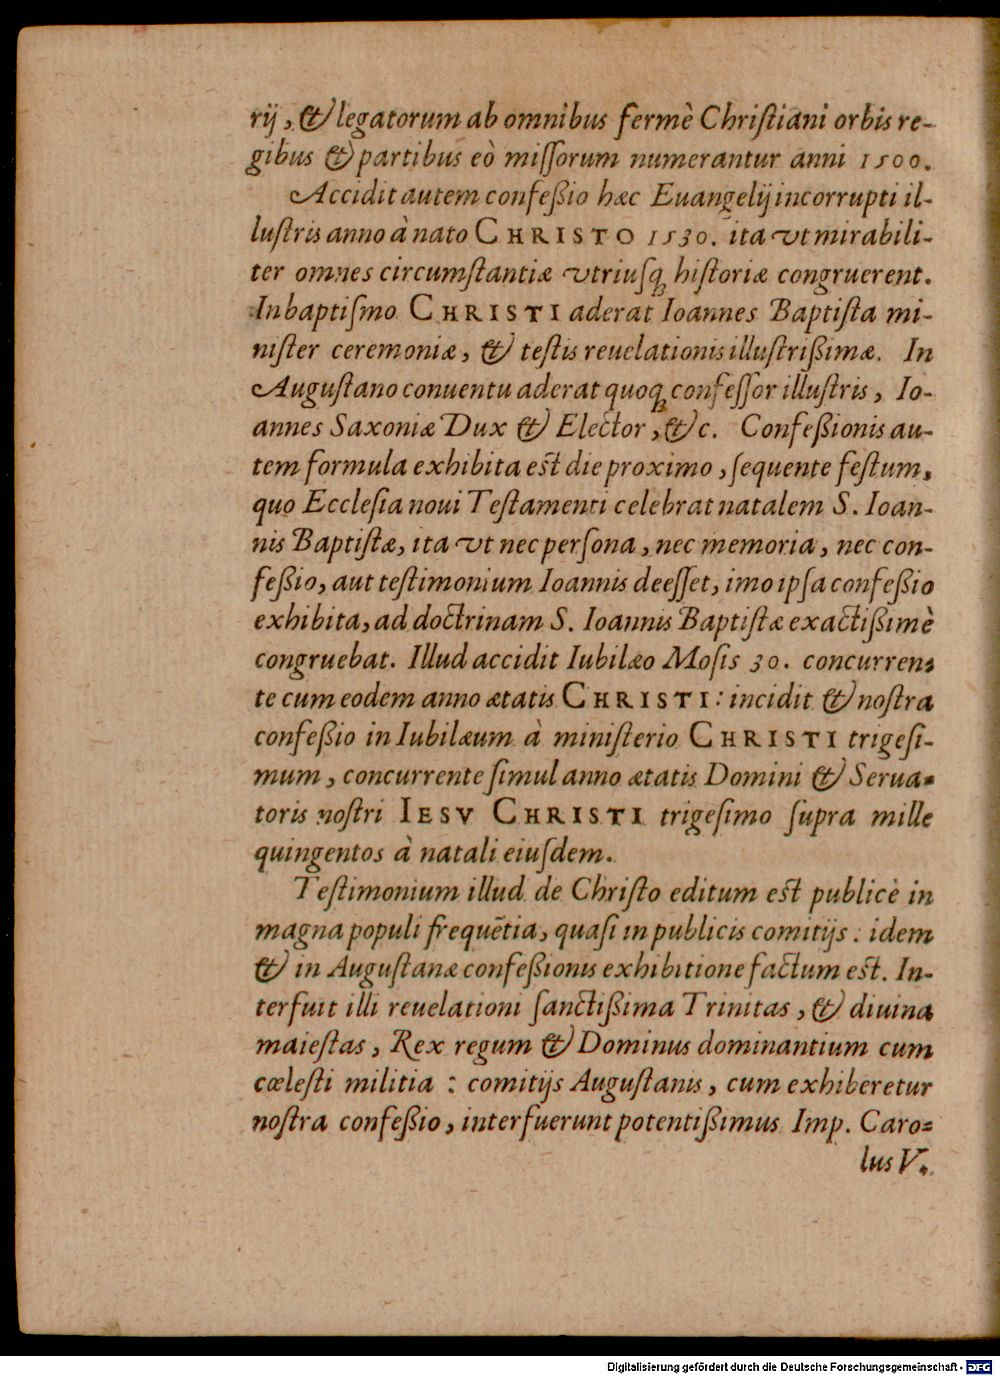 rij, & legatorum ab omnibus fermè Chriſtiani orbis re-
gibus & partibus eò miſſorum numerantur anni 1500.
Accidit autem confeßio hæc Euangelij incorrupti il-
luſtris anno à nato CHRISTO 1530. ita vt mirabili-
ter omnes circumſtantiæ vtriuſq́ꝫ hiſtoriæ congruerent.
In baptiſmo CHRISTI aderat Ioannes Baptiſta mi-
niſter ceremoniæ, & teſtis reuelationis illuſtrißimæ. In
Auguſtano conuentu aderat quoqꝫ confeſſor illuſtris, Io-
annes Saxoniæ Dux & Elector, &c. Confeßionis au-
tem formula exhibita eſt die proximo, ſequente feſtum,
quo Eccleſia noui Teſtamenti celebrat natalem S. Ioan-
nis Baptiſtæ, ita vt nec perſona, nec memoria, nec con-
feßio, aut teſtimonium Ioannis deeſſet, imo ipſa confeßio
exhibita, ad doctrinam S. Ioannis Baptiſtæ exactißimè
congruebat. Illud accidit Iubilæo Moſis 30. concurren-
te cum eodem anno ætatis CHRISTI: incidit & noſtra
confeßio in Iubilæum à miniſterio CHRISTI trigeſi-
mum, concurrente ſimul anno ætatis Domini & Serua-
toris noſtri IESV CHRISTI trigeſimo ſupra mille
quingentos à natali eiuſdem.
Teſtimonium illud de Chriſto editum eſt publicè in
magna populi frequẽtia, quaſi in publicis comitijs: idem
& in Auguſtanæ confeßionis exhibitione factum eſt. In-
terfuit illi reuelationi ſanctißima Trinitas, & diuina
maieſtas, Rex regum & Dominus dominantium cum
cœleſti militia: comitijs Auguſtanis, cum exhiberetur
noſtra confeßio, interfuerunt potentißimus Imp. Caro-
lus V.
Digitalisierung gefördert durch die Deutsche Forschungsgemeinschaft - DFG